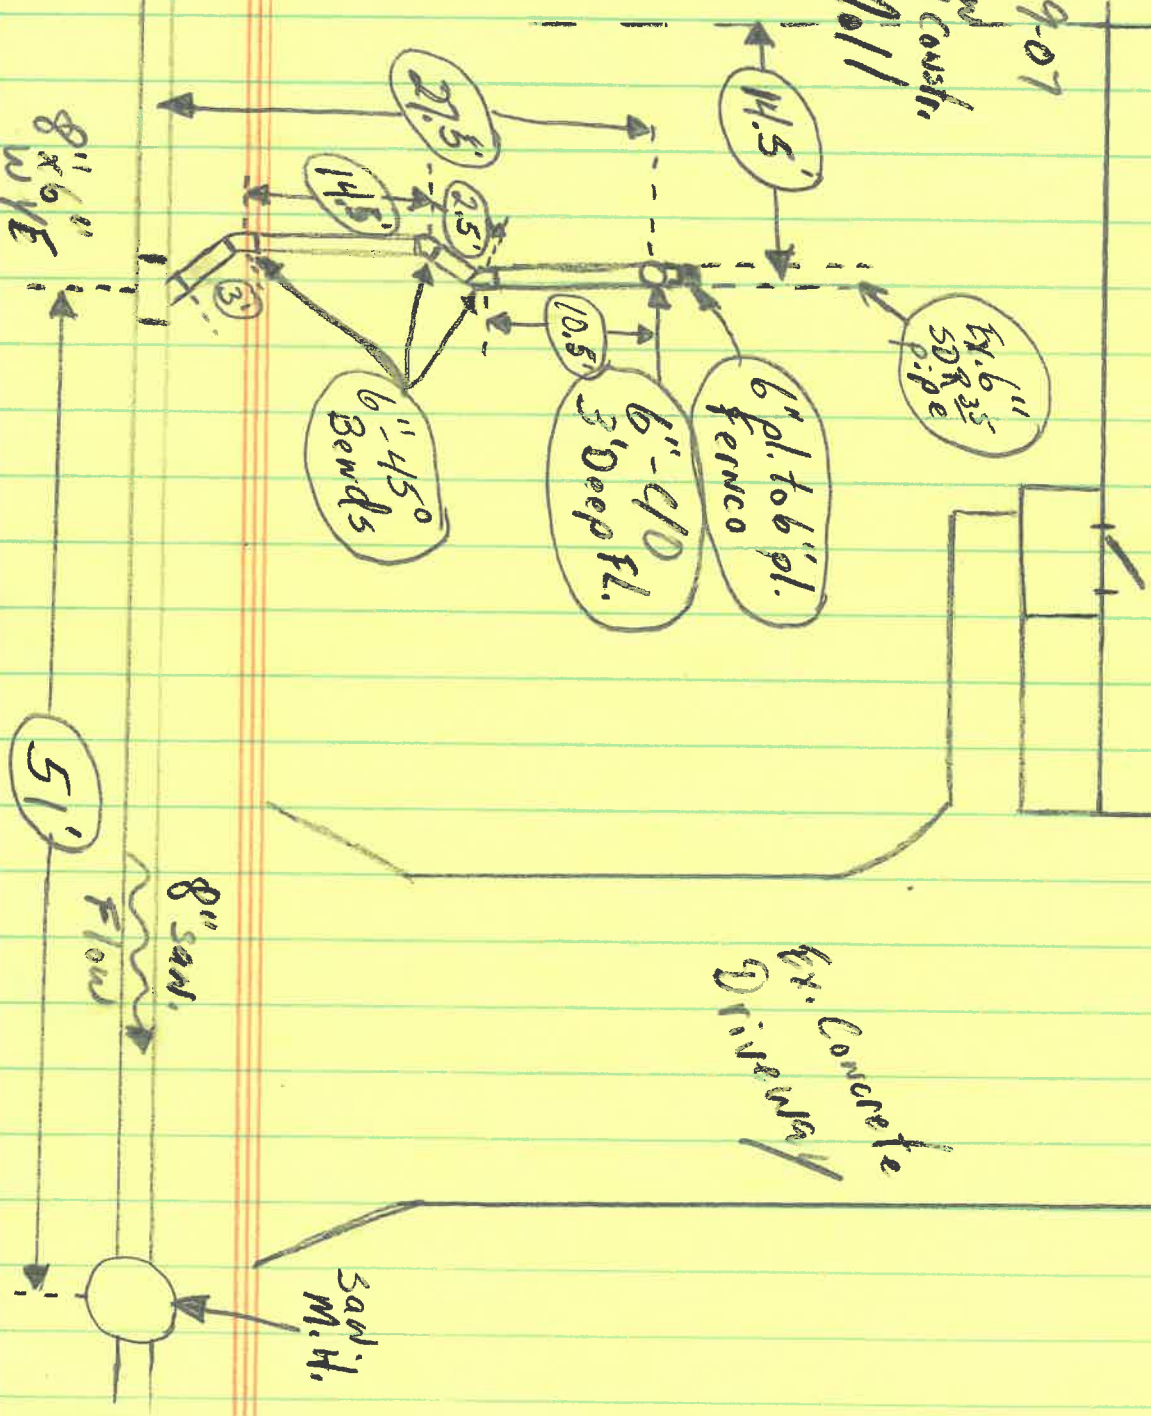 9-07
Constr.
14.5'
27.5'
14.5'
2.5'
3'
10.5'
Ex. 6"
SDR 35
pipe
6" pl. to 6" pl.
Fernco
6"-C/O
3' Deep FL.
6"-45°
Bends
8"x6"
WYE
51'
8" san.
Flow
Ex. Concrete
Driveway
San.
M.H.